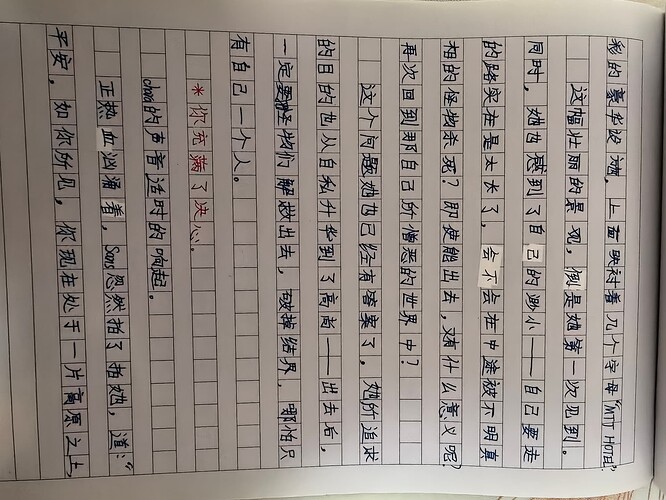 彩的豪华设施，上面映衬着几个字母“MTT HOTEL”.
这幅壮丽的景观，倒是她第一次见到。
同时，她也感到了自己的渺小——自己要走
的路实在是太长了，会不会在中途被不明真
相的怪物杀死？即使能出去，又有什么意义呢？
再次回到那自己所憎恶的世界中？
这个问题她也已经有答案了。她所追求
的目的也从自私升华到了高尚——出去后，
一定要怪物们解救出去，破掉结界，哪怕只
有自己一个人。
*你充满了决心.
chara的声音适时的响起。
正热血汹涌着，Sans忽然拍了拍她，道：“
平安，如你所见，你现在处于一片高原之上